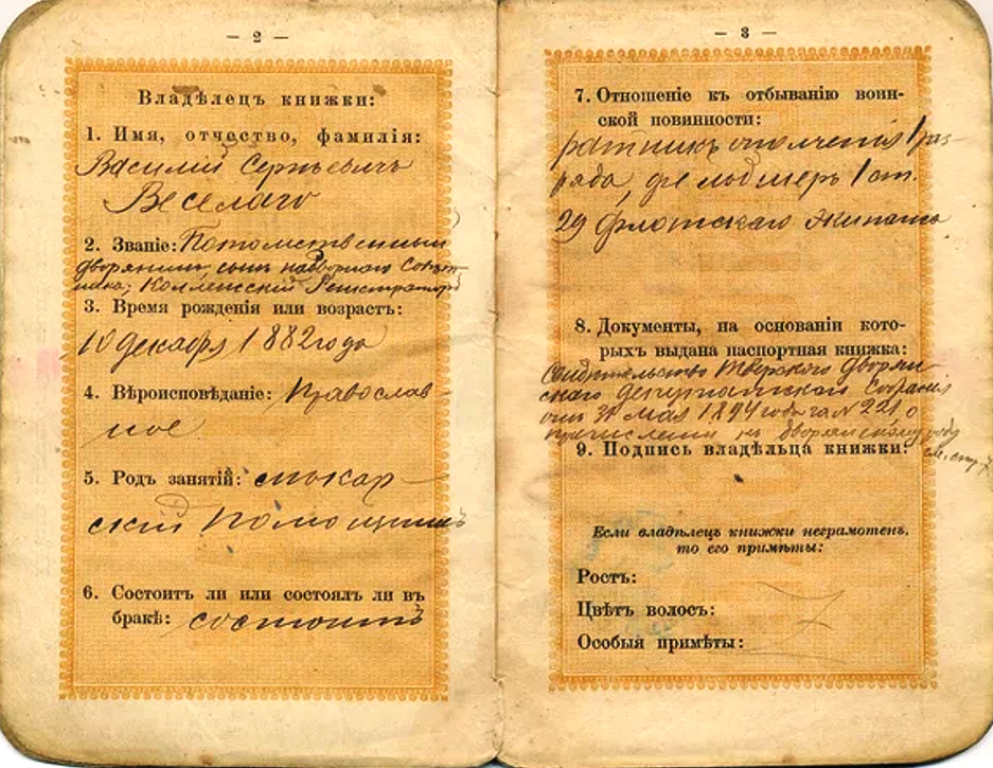 — 2 —
Владѣлецъ книжки:
1. Имя, отчество, фамилія:
Василій Сергѣевичъ
Веселаго
2. Званіе: Потомственный
дворянинъ, сынъ надворнаго Совѣт-
ника; Коллежскій Регистраторъ
3. Время рожденія или возрастъ:
10 декабря 1882 года
4. Вѣроисповѣданіе: Православ-
ное
5. Родъ занятій:
скій помощникъ
6. Состоитъ ли или состоялъ ли въ
бракѣ: состоитъ
— 3 —
7. Отношеніе къ отбыванію воин-
ской повинности:
ратникъ ополченія 1 раз-
ряда, фельдшеръ 1 ст.
29 флотскаго экипажа
8. Документы, на основаніи кото-
рыхъ выдана паспортная книжка:
Свидѣтельство Тверского Дворян-
скаго Депутатскаго Собранія
отъ 31 Мая 1894 года за № 221 о
причисленіи къ дворянскому роду
см. стр. 7.
9. Подпись владѣльца книжки:
Если владѣлецъ книжки неграмотенъ,
то его примѣты:
Ростъ:
Цвѣтъ волосъ:
Особыя примѣты: